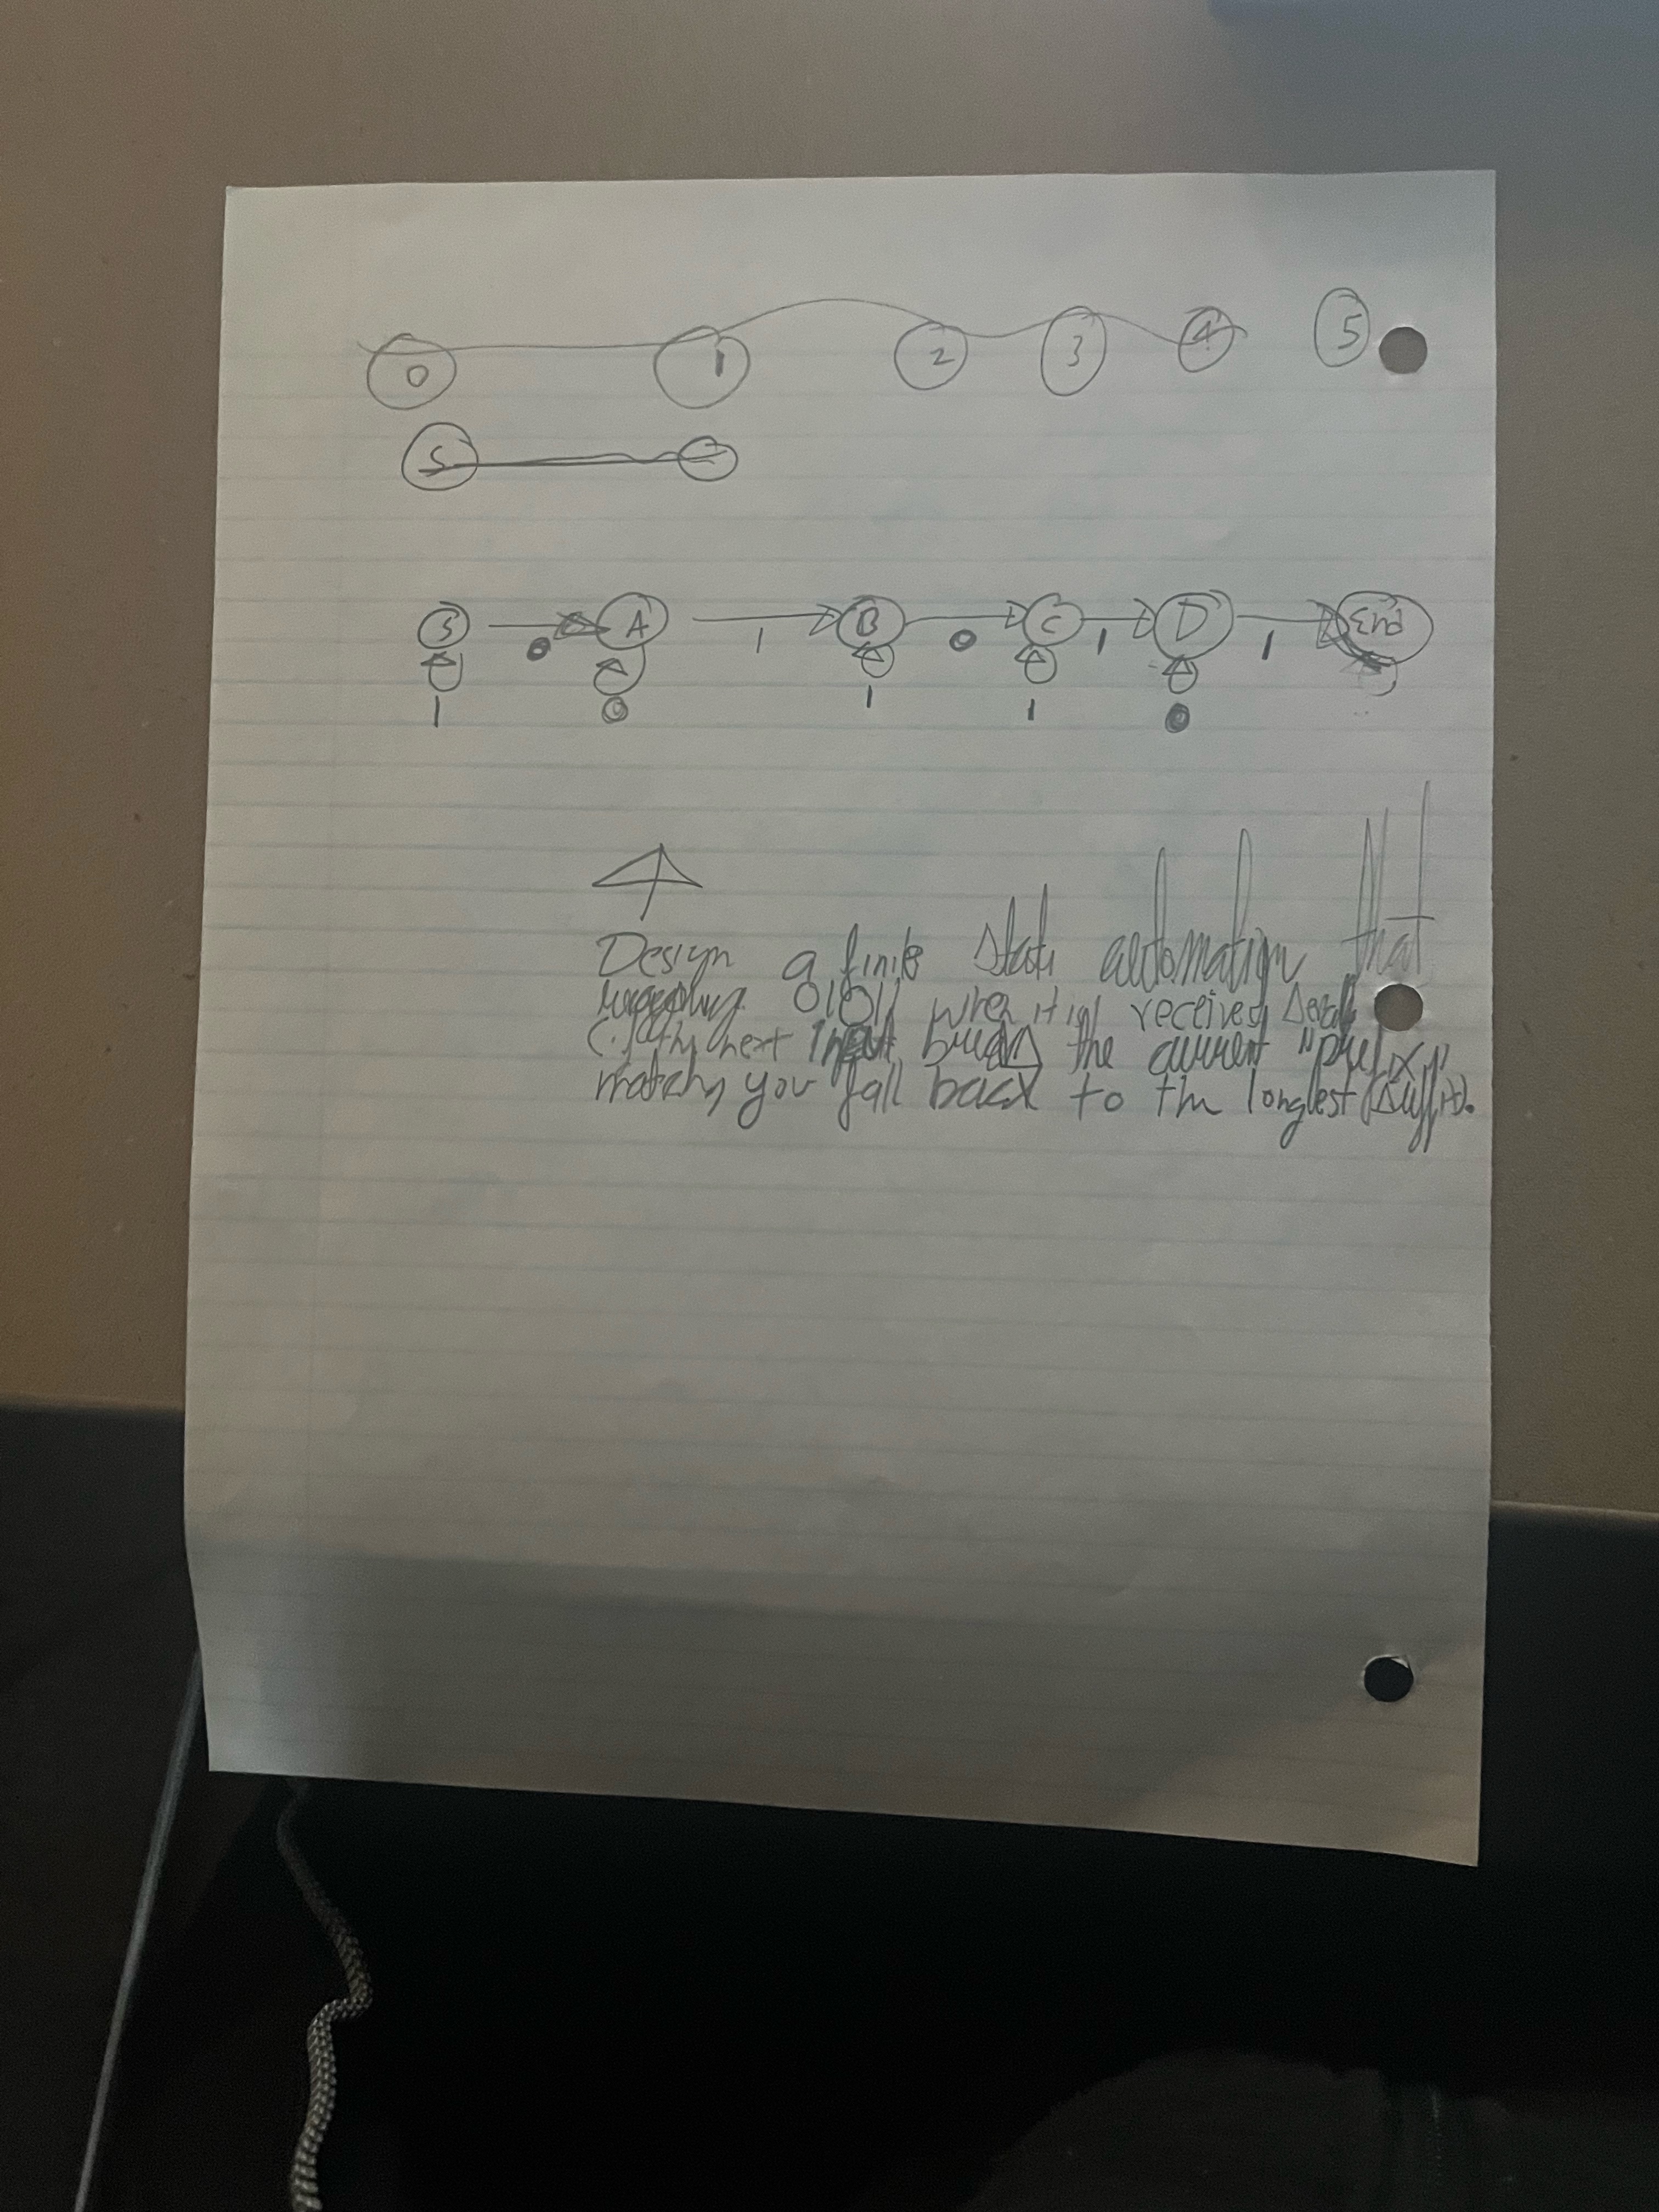 0 1 2 3 4 5
S
S A B C D End
0 1 0 1 1
1 0 1 1 0
Design a finite state automation that
01011 when it is received
next input breaks the current "prefix"
match, you fall back to the longest suffix.